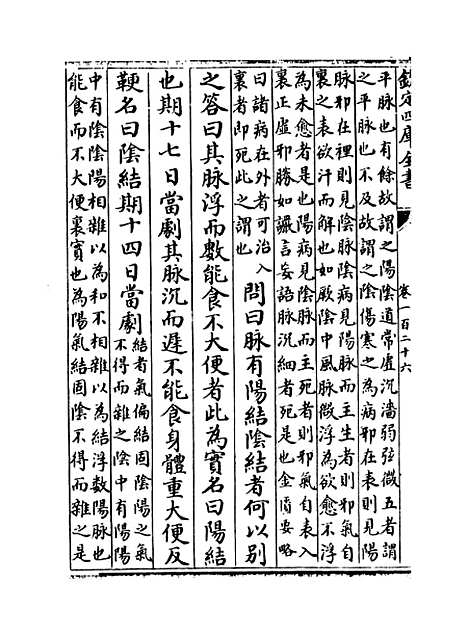 欽定四庫全書
卷一百二十六
平脉也有餘故謂之陽陰道常虛沉濇弱弦微五者謂
之平脉也不及故謂之陰傷寒之為病邪在表則見陽
脉邪在裡則見陰脉陰病見陽脉而主生者則邪氣自
裏之表欲汗而解也如厥陰中風脉微浮為欲愈不浮
為未愈者是也陽病見陰脉而主死者則邪氣自表入
裏正虛邪勝如讝言妄語脉沉細者死是也金匱要略
曰諸病在外者可治入
裏者即死此之謂也
問曰脉有陽結陰結者何以別
之答曰其脉浮而數能食不大便者此為實名曰陽結
也期十七日當劇其脉沉而遲不能食身體重大便反
鞕名曰陰結期十四日當劇
結者氣偏結固陰陽之氣
不得而雜之陰中有陽陽
中有陰陰陽相雜以為和不相雜以為結浮數陽脉也
能食而不大便裏實也為陽氣結固陰不得而雜之是